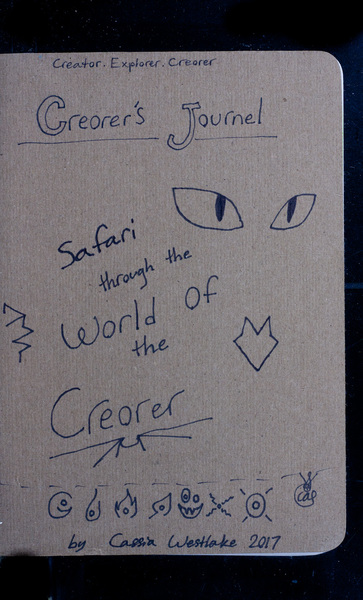 Creator. Explorer. Creorer
Creorer's Journal
Safari
through the
World of
the
Creorer
by Cassia Westlake 2017